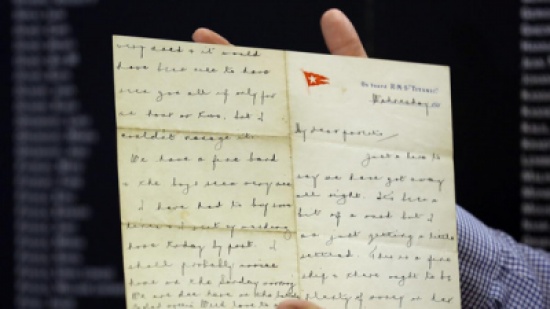 On board R.M.S. "Titanic"
Wednesday 191
My dear parents,
Just a line to
say we have got away
all right. It's been a
bit of a rush but I
am just getting a little
settled. This is a fine
ship & there ought to be
plenty of money on her
& it would
have been nice to have
seen you all if only for
an hour or two, but I
couldn't manage it.
We have a fine band
& the boys seem very nice
I have had to buy some
linen & I sent my washing
home today by post. I
shall probably arrive
home on the Sunday morning
We are due here on the
love to